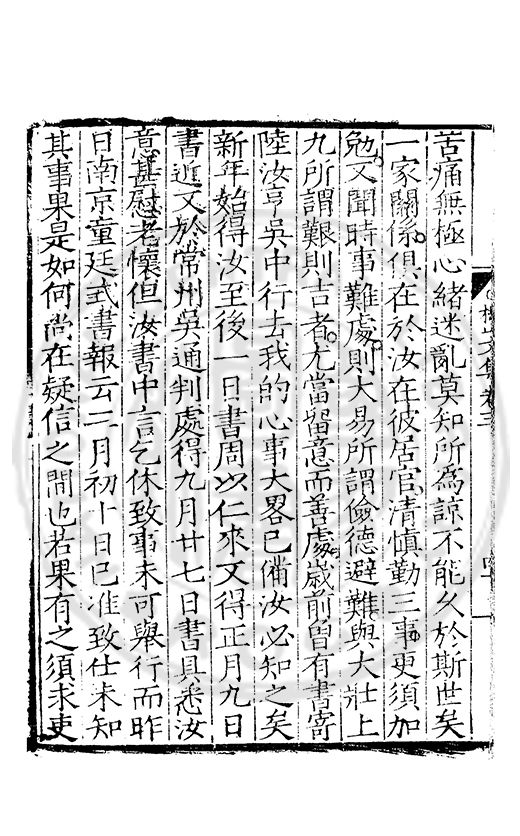 苦痛無極心緒迷亂莫知所為諒不能久於斯世矣
一家關係俱在於汝在彼居官清慎勤三事更須加
勉又聞時事難處則大易所謂儉德避難與大壯上
九所謂艱則吉者尤當留意而善處歲前曾有書寄
陸汝亨吳中行去我的心事大畧已備汝必知之矣
新年始得汝至後一日書周以仁來又得正月九日
書近又於常州吳通判處得九月廿七日書具悉汝
意甚慰老懷但汝書中言乞休致事未可舉行而昨
日南京童廷式書報云二月初十日已准致仕未知
其事果是如何尚在疑信之間也若果有之須求吏